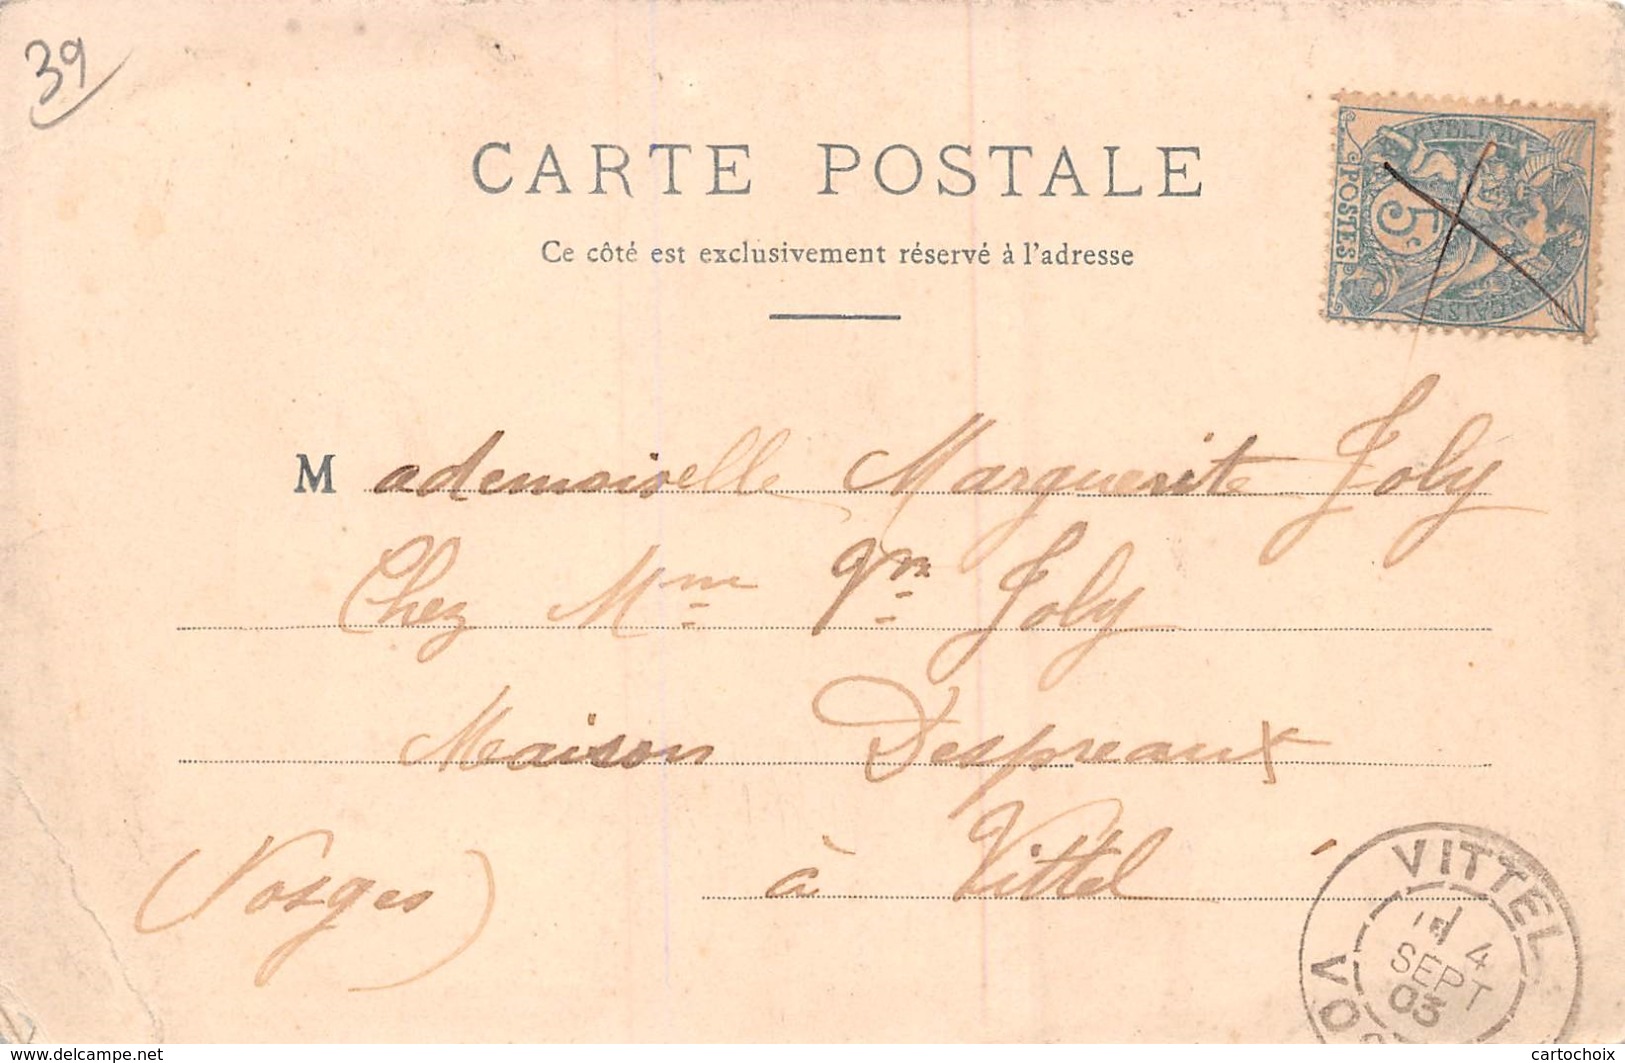 39
CARTE POSTALE
Ce côté est exclusivement réservé à l'adresse
POSTES
5c
Mademoiselle Marguerite Joly
Chez Mme Joly
Maison Despreaux
à Vittel
(Vosges)
VITTEL
4
SEPT
03
delcampe.net
cartochoix